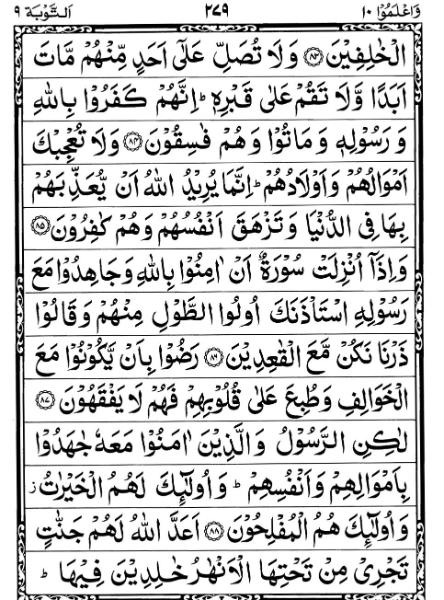 وَاعْلَمُوْٓا ١٠ ٢٧٩ اَلتَّوْبَة ٩
الْخٰلِفِيْنَ ﴿٨٣﴾ وَلَا تُصَلِّ عَلٰٓى اَحَدٍ مِّنْهُمْ مَّاتَ
اَبَدًا وَّلَا تَقُمْ عَلٰى قَبْرِهٖ ؕ اِنَّهُمْ كَفَرُوْا بِاللّٰهِ
وَ رَسُوْلِهٖ وَ مَاتُوْا وَ هُمْ فٰسِقُوْنَ ﴿٨٤﴾ وَلَا تُعْجِبْكَ
اَمْوَالُهُمْ وَ اَوْلَادُهُمْ ؕ اِنَّمَا يُرِيْدُ اللّٰهُ اَنْ يُّعَذِّبَهُمْ
بِهَا فِى الدُّنْيَا وَ تَزْهَقَ اَنْفُسُهُمْ وَ هُمْ كٰفِرُوْنَ ﴿٨٥﴾
وَ اِذَاۤ اُنْزِلَتْ سُوْرَةٌ اَنْ اٰمِنُوْا بِاللّٰهِ وَ جَاهِدُوْا مَعَ
رَسُوْلِهِ اسْتَاْذَنَكَ اُولُوا الطَّوْلِ مِنْهُمْ وَ قَالُوْا
ذَرْنَا نَكُنْ مَّعَ الْقٰعِدِيْنَ ﴿٨٦﴾ رَضُوْا بِاَنْ يَّكُوْنُوْا مَعَ
الْخَوَالِفِ وَ طُبِعَ عَلٰى قُلُوْبِهِمْ فَهُمْ لَا يَفْقَهُوْنَ ﴿٨٧﴾
لٰكِنِ الرَّسُوْلُ وَ الَّذِيْنَ اٰمَنُوْا مَعَهٗ جٰهَدُوْا
بِاَمْوَالِهِمْ وَ اَنْفُسِهِمْ ؕ وَ اُولٰٓئِكَ لَهُمُ الْخَيْرٰتُ ز
وَ اُولٰٓئِكَ هُمُ الْمُفْلِحُوْنَ ﴿٨٨﴾ اَعَدَّ اللّٰهُ لَهُمْ جَنّٰتٍ
تَجْرِيْ مِنْ تَحْتِهَا الْاَنْهٰرُ خٰلِدِيْنَ فِيْهَا ؕ